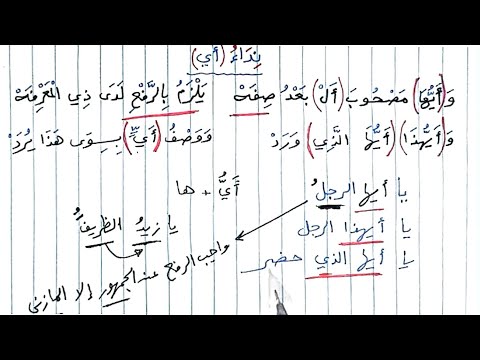 نِدَاءُ (أي)
وَ(أَيُّهَا) مَصْحُوبَ (أَلْ) بَعْدُ صِفَهْ يَلْزَمُ بِالرَّفْعِ لَدَى ذِي الْمَعْرِفَهْ
وَ(أَيُّهَذَا) (أَيُّهَا الَّذِي) وَرَدْ وَوَصْفُ (أَيٍّ) بِسِوَى هَذَا يُرَدّْ
يا أيها الرجلُ أَيُّ + ها
يا أيهذا الرجل يا زيدُ الظريفُ
يا أيها الذي حضر واجب الرفع عند الجمهور إلا المازني